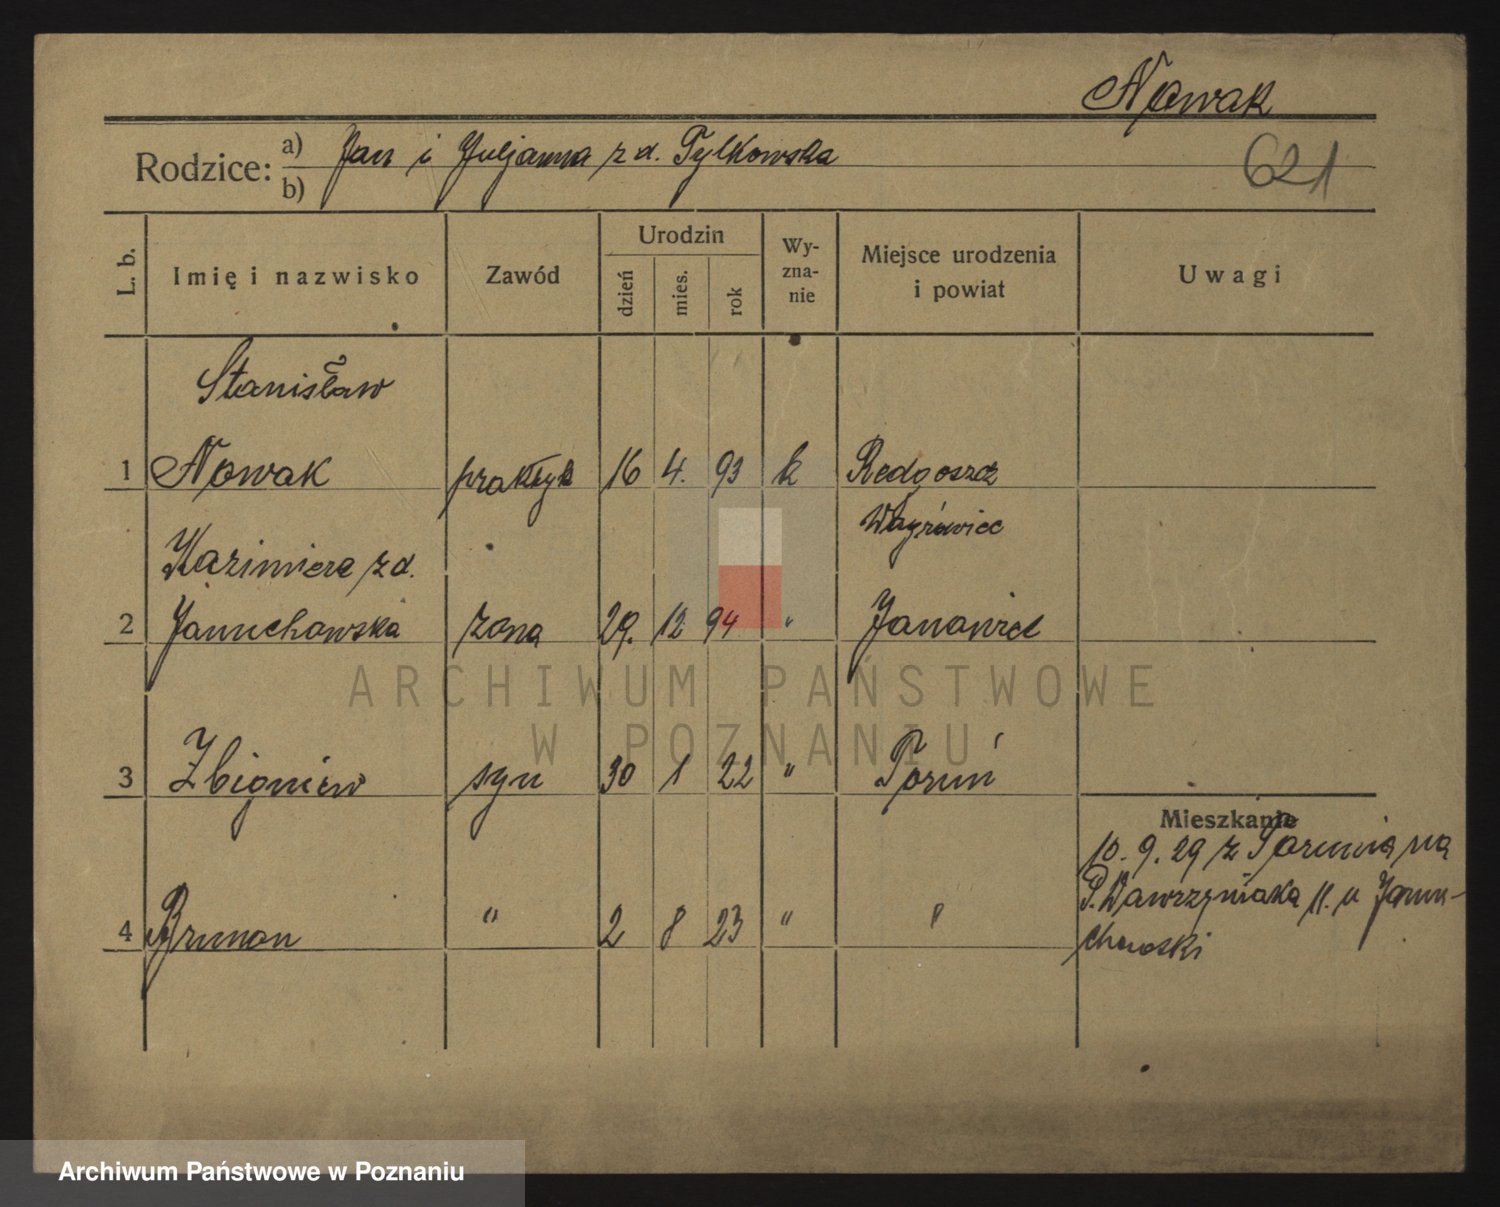 Nowak
621
Rodzice: a) Jan i Juljanna z d. Tylkowska
b)
L. b. Imię i nazwisko Zawód Urodzin dzień mies. rok Wyzna-nie Miejsce urodzenia i powiat Uwagi
Stanisław
1 Nowak praktyk 16 4. 93 k Redgoszcz
Wągrowiec
Kazimiera z d.
2 Januchowska żona 29. 12 94 " Janowiec
3 Zbigniew syn 30 1 22 " Toruń
Mieszkanie
10. 9. 29 z Torunia na
P. Wawrzyniaka 11. u Janu-
4 Brunon " 2 8 23 " "
chowski
ARCHIWUM PAŃSTWOWE
W POZNANIU
Archiwum Państwowe w Poznaniu